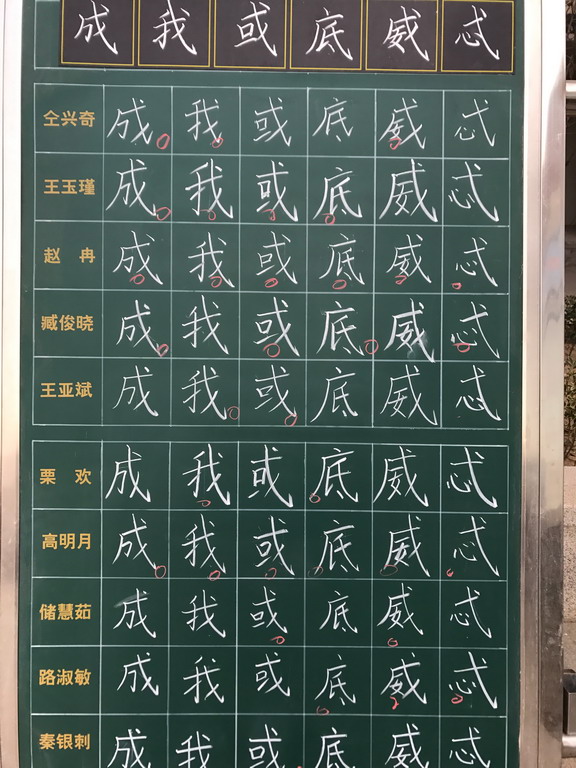 成 我 或 底 威 忒
仝兴奇 成 我 或 底 威 忒
王玉瑾 成 我 或 底 威 忒
赵冉 成 我 或 底 威 忒
臧俊晓 成 我 或 底 威 忒
王亚斌 成 我 或 底 威 忒
栗欢 成 我 或 底 威 忒
高明月 成 我 或 底 威 忒
储慧茹 成 我 或 底 威 忒
路淑敏 成 我 或 底 威 忒
秦银刺 成 我 或 底 威 忒